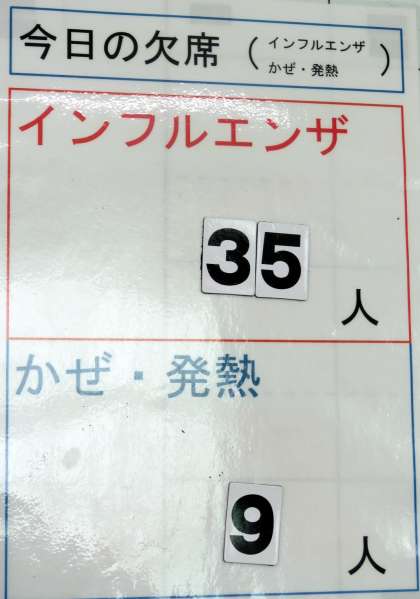 今日の欠席（インフルエンザ
かぜ・発熱）
インフルエンザ
35人
かぜ・発熱
9人